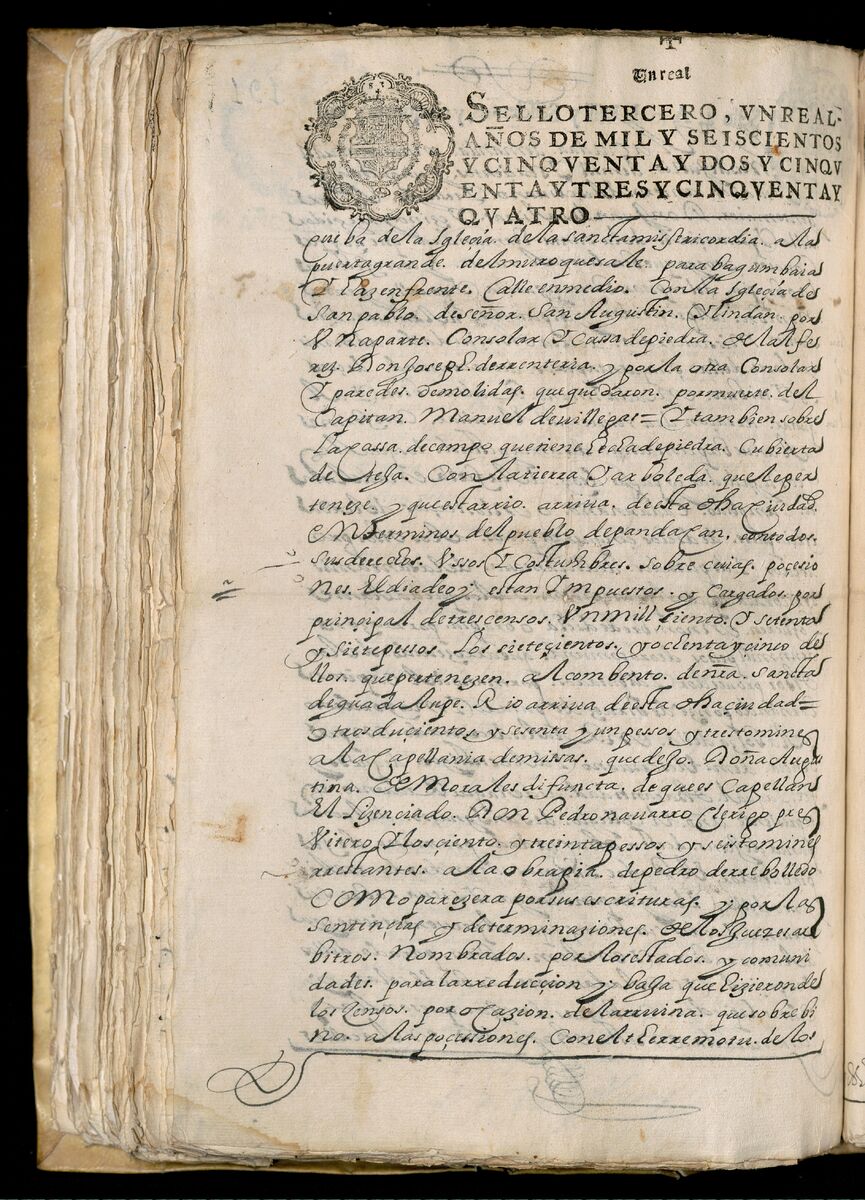 Vn real
SELLO TERCERO, VN REAL.
AÑOS DE MIL Y SEISCIENTOS
Y CINQVENTA Y DOS Y CINQV
ENTA Y TRES Y CINQVENTA Y
QVATRO
que ba de la Iglecia. de la sancta missericordia. a la
puerta grande. del muro que sale. para bagumbaia
Y haz en frente. Calle en medio. Con la Iglecia de
San pablo. de señor. San Augustin. Y lindan. por
Vna parte. Con solar Y cassa de piedra. del Alfe
rez. Don Joseph. de rrenteria. y por la otra Con solar
Y paredes. Demolidas. que quedaron. por muerte. del
Capitan. Manuel de uillegas = Y tambien sobre
la cassa. de campo que tiene hecha de piedra. Cubierta
de teja. Con la tierra Y arboleda. que le per
teneze. y que esta rrio. arriua. de esta dha çiudad.
En terminos del pueblo de pandacan, con todos.
Sus derechos. Vssos Y costumbres. sobre cuias poçesio
nes. El dia de oy estan Ympuestos. y Cargados. por
prinçipal de tres censos. Vn mill çiento. Y setenta
y siete pessos. Los sieteçientos. y ochenta y cinco de
llos. que pertenezen. al combento. de nra. Sancta
de guadalupe. Rio arriua de esta dha çiudad =
otros duçientos y sesenta y un pessos y tres tomines
a la Capellania de missas. que dejo. Doña Augus
tina. de Morales difuncta. de que es Capellan
El Lizenciado. Don Pedro nauarro Clerigo pres
Vitero Y los çiento. y treinta pessos y seis tomines
rrestantes. a la obra pia. de pedro de rrebolledo
Como parezera por sus escrituras. y por las
Sentençias y determinaziones. de los Juezes ar
bitros. nombrados. por los estados. y comuni
dades. para la rreducçion y baja que hizieron de
los Zensos. por ocazion. de la rruina. que sobre bi
no. a las poçessiones. Con el terremotu. de los